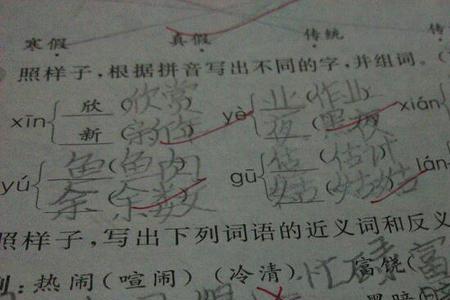 寒假 真假 传统 传
照样子,根据拼音写出不同的字,并组词。(
xīn 欣(欣赏) yè 业(作业) xián
新(新年) 夜(黑夜)
yú 鱼(鱼肉) gū 估(估计) lán
余(余数) 姑(姑姑)
照样子,写出下列词语的近义词和反义
:热闹(喧闹)(冷清) 富饶(富